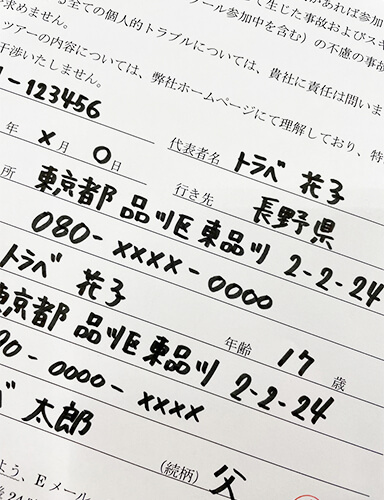 る全ての個人的トラブルについては、貴社に責任は問いま
ール参加中を含む）の不慮の事故
って生じた事故およびスキ
求めません。
ツアーの内容については、弊社ホームページにて理解しており、特
干渉いたしません。
1-123456
年 x 月 0 日
代表者名 トラベ 花子
所 東京都 品川区 東品川 2-2-24
行き先 長野県
080-xxxx-0000
トラベ 花子
年齢 17 歳
東京都 品川区 東品川 2-2-24
0-0000-xxxx
ベ 太郎
(続柄) 父
よう、Eメール